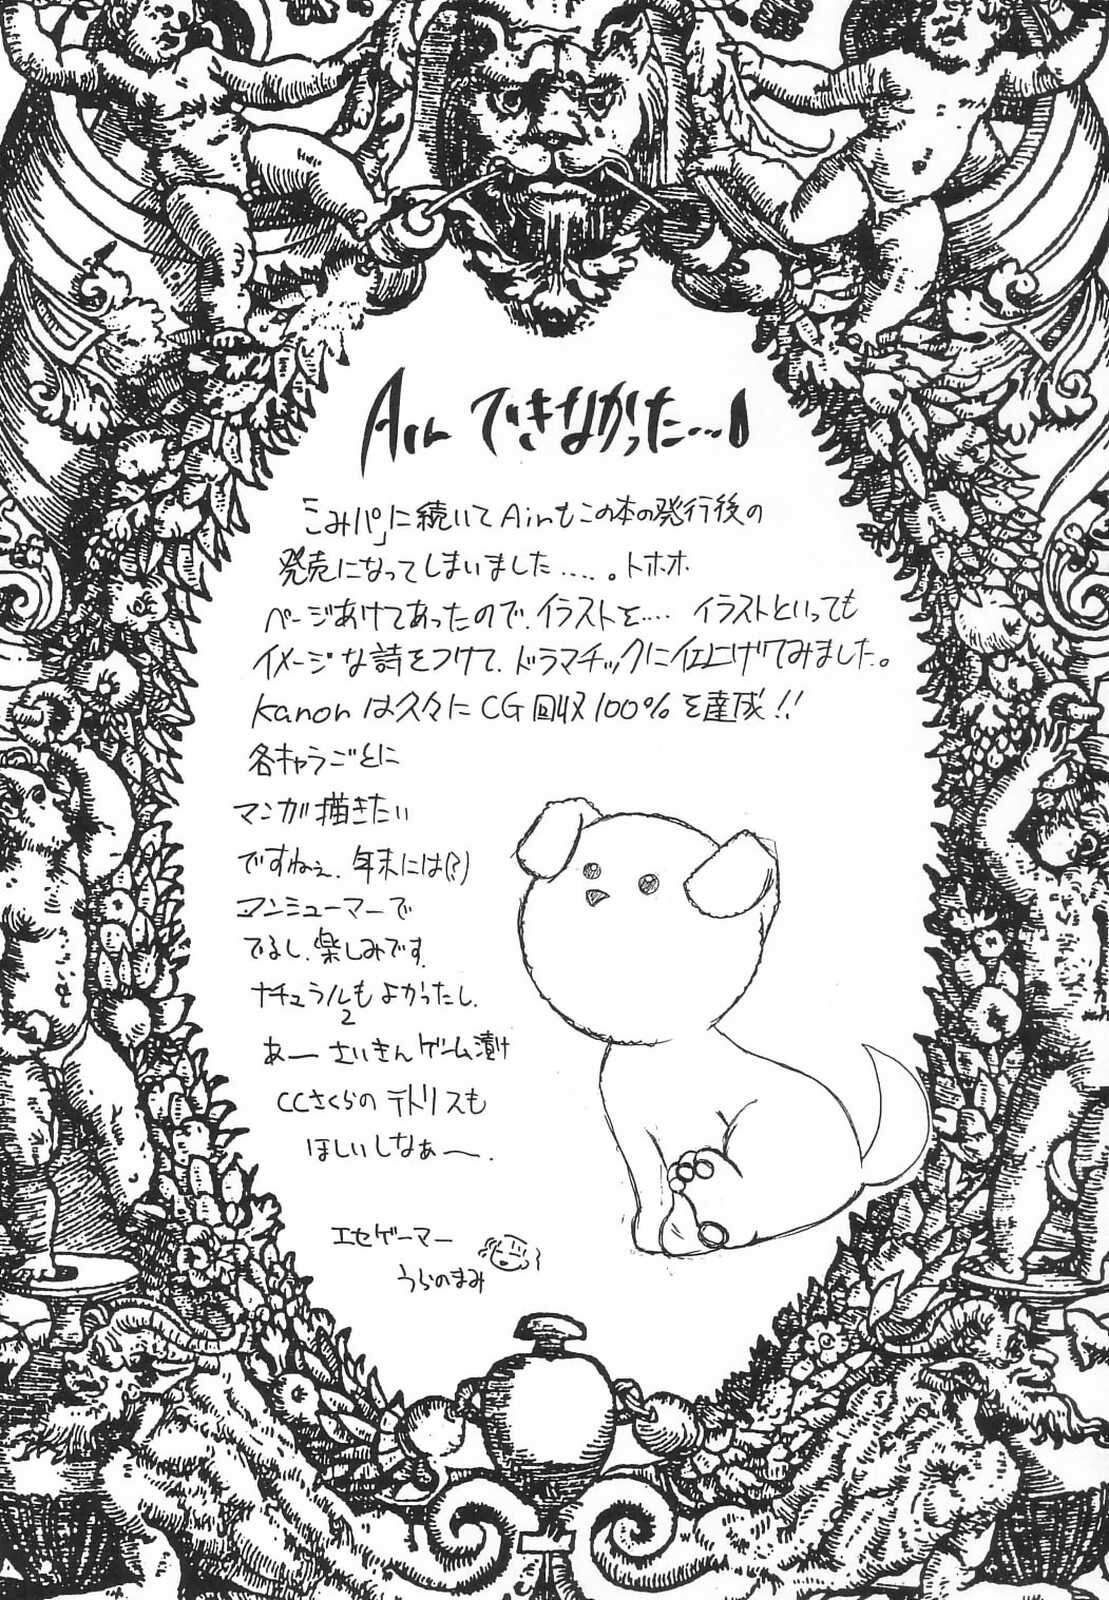 Air できなかった…
「こみパ」に続いて Airもこの本の発行後の
発売になってしまいました….。トホホ
ページあけてあったので、イラストを…. イラストといっても
イメージな詩をつけて、ドラマチックに仕上げてみました。
Kanonは久々にCG回収100%を達成!!
各キャラごとに
マンガ描きたい
ですねぇ、年末には(?)
マンミューマーで
でるし、楽しみです。
ナチュラル2もよかったし、
あー さいきんゲーム漬け
CCさくらのテトリスも
ほしいしなぁー.
エセゲーマー
うらのまみ